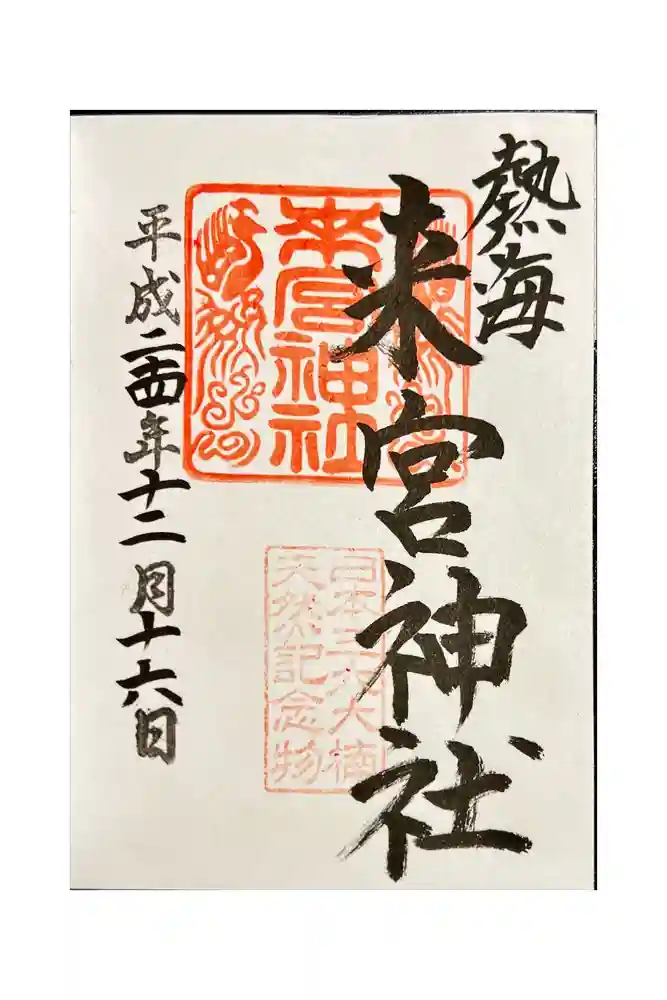 熱海
来宮神社
来宮神社
日本三大大楠
天然記念物
平成二十四年十二月十六日